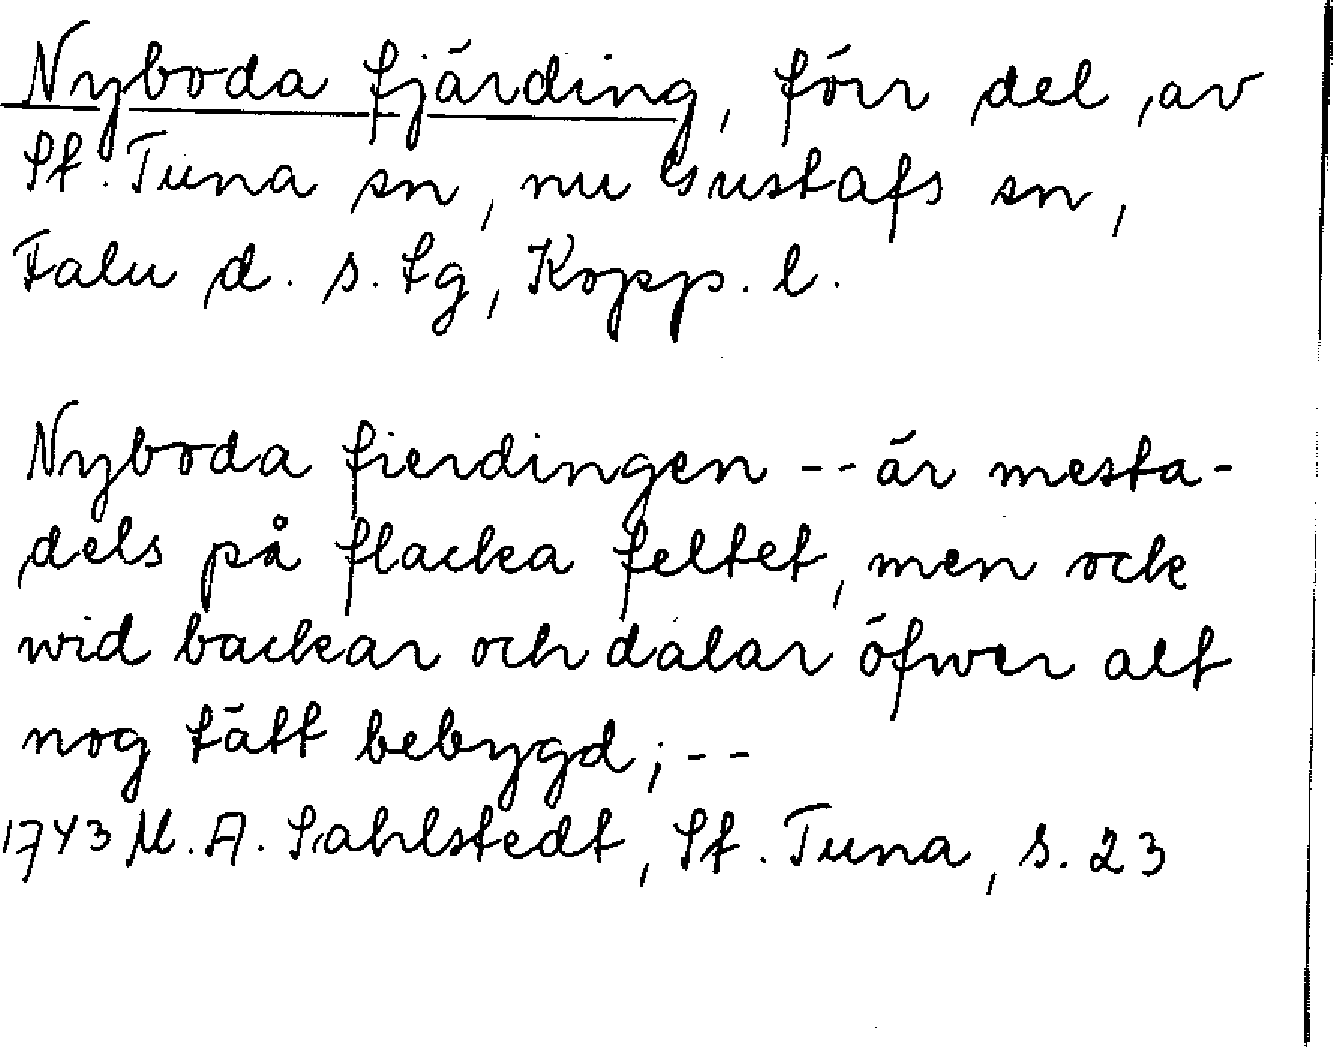 Nyboda fjärding, förr del av
St. Tuna sn, nu Gustafs sn,
Falu d. s. tg, Kopp. l.
Nyboda fierdingen -- är mesta-
dels på flacka feltet, men ock
wid backar och dalar öfwer alt
nog tätt bebygd; --
1743 M. A. Sahlstedt, St. Tuna, s. 23